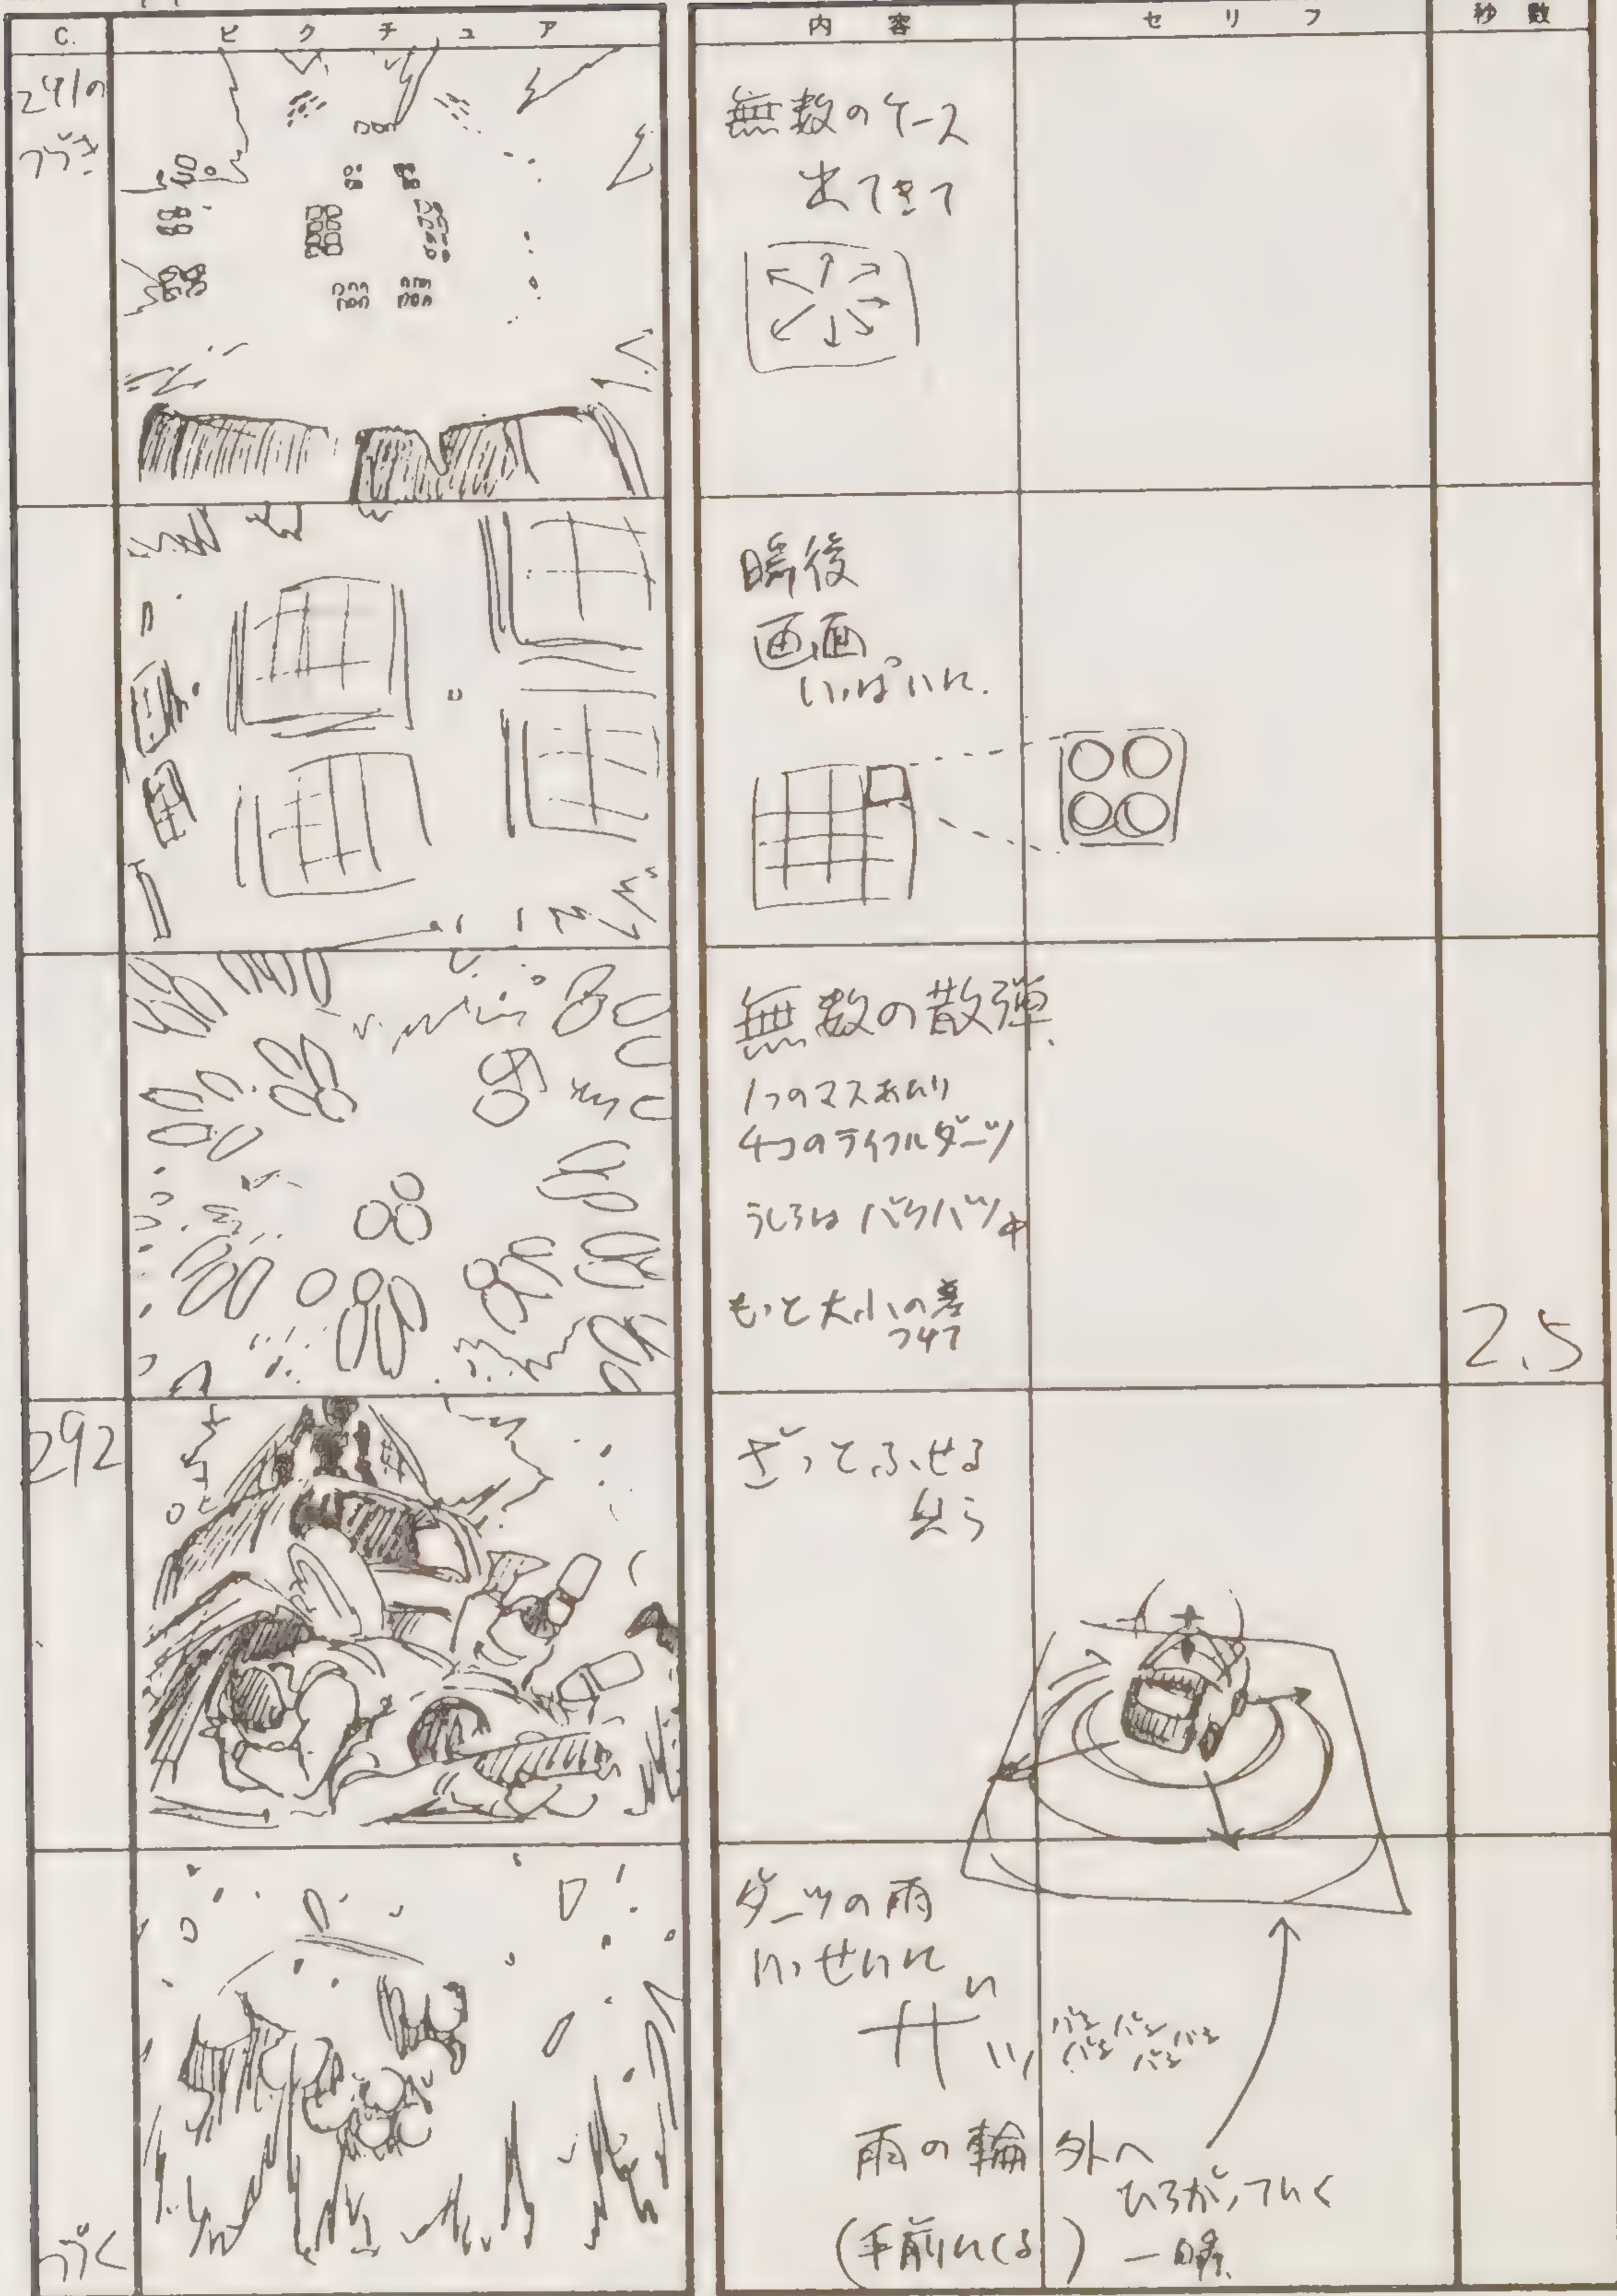 C.
ピクチュア
内容
セリフ
秒数
291の
つづき
無数のケース
出てきて
瞬後
画面
いっぱいに.
無数の散弾.
1つのマスあたり
4つのライフルダーツ
うしろはバクハツ中
もっと大小の差
つけて
2.5
292
ざっとふせる
兵ら
ダーツの雨
いっせいに
ザッ
バシバシバシ
バシバシ
雨の輪 外へ
ひろがっていく
(手前にくる) 一瞬.
つづく